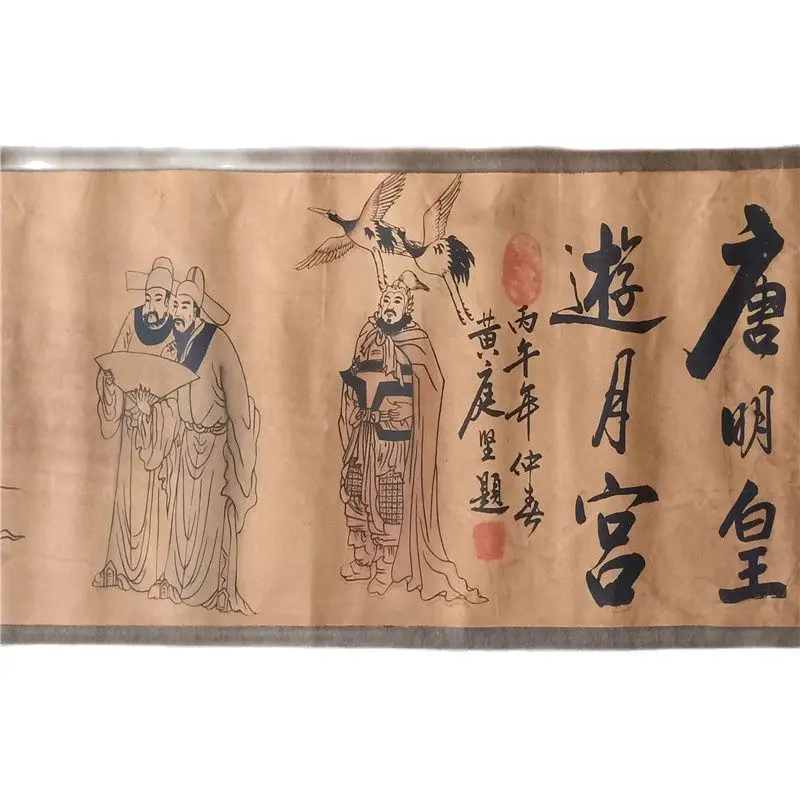 唐明皇
遊月宮
丙午年仲春
黃庭坚題